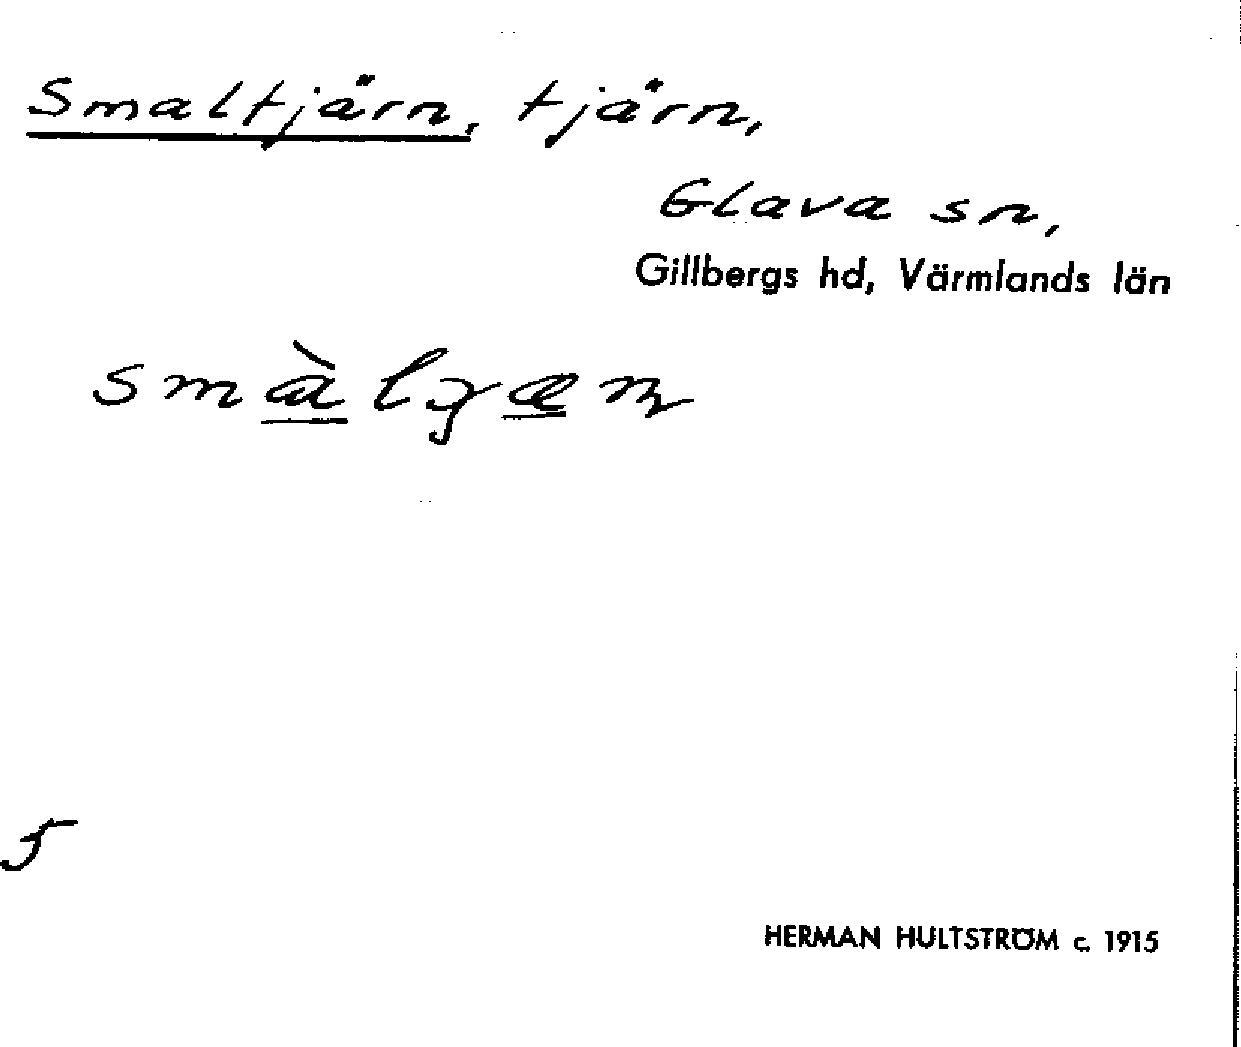 Smaltjärn, tjärn,
Glava sn,
Gillbergs hd, Värmlands län
5
HERMAN HULTSTRÖM c. 1915